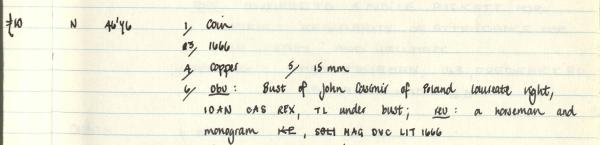 #10 N 46'Y6 1/ Coin
3/ 1666
4/ Copper 5/ 15 mm
6/ Obv : Bust of John Casimir of Poland laureate right,
IOAN CAS REX, TL under bust; REV : a horseman and
monogram HAG DVC LIT 1666